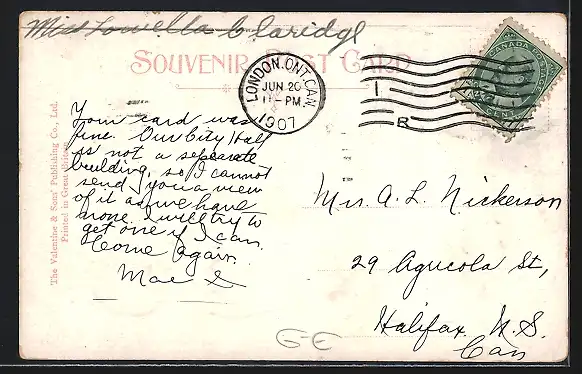 Miss Lowella Claridge
SOUVENIR POST CARD
LONDON. ONT. CAN.
JUN 20
11-PM
1907
I
B
CANADA POSTAGE
CENT
Your card was
fine. Our City Hall
is not a seperate
building, so I cannot
send you a view
of it as we have
none. I will try to
get one if I can.
Come again.
Mae
Mrs. A. L. Nickerson
29 Agricola St,
Halifax. N. S.
Can
G-E
The Valentine & Sons' Publishing Co., Ltd.
Printed in Great Britain